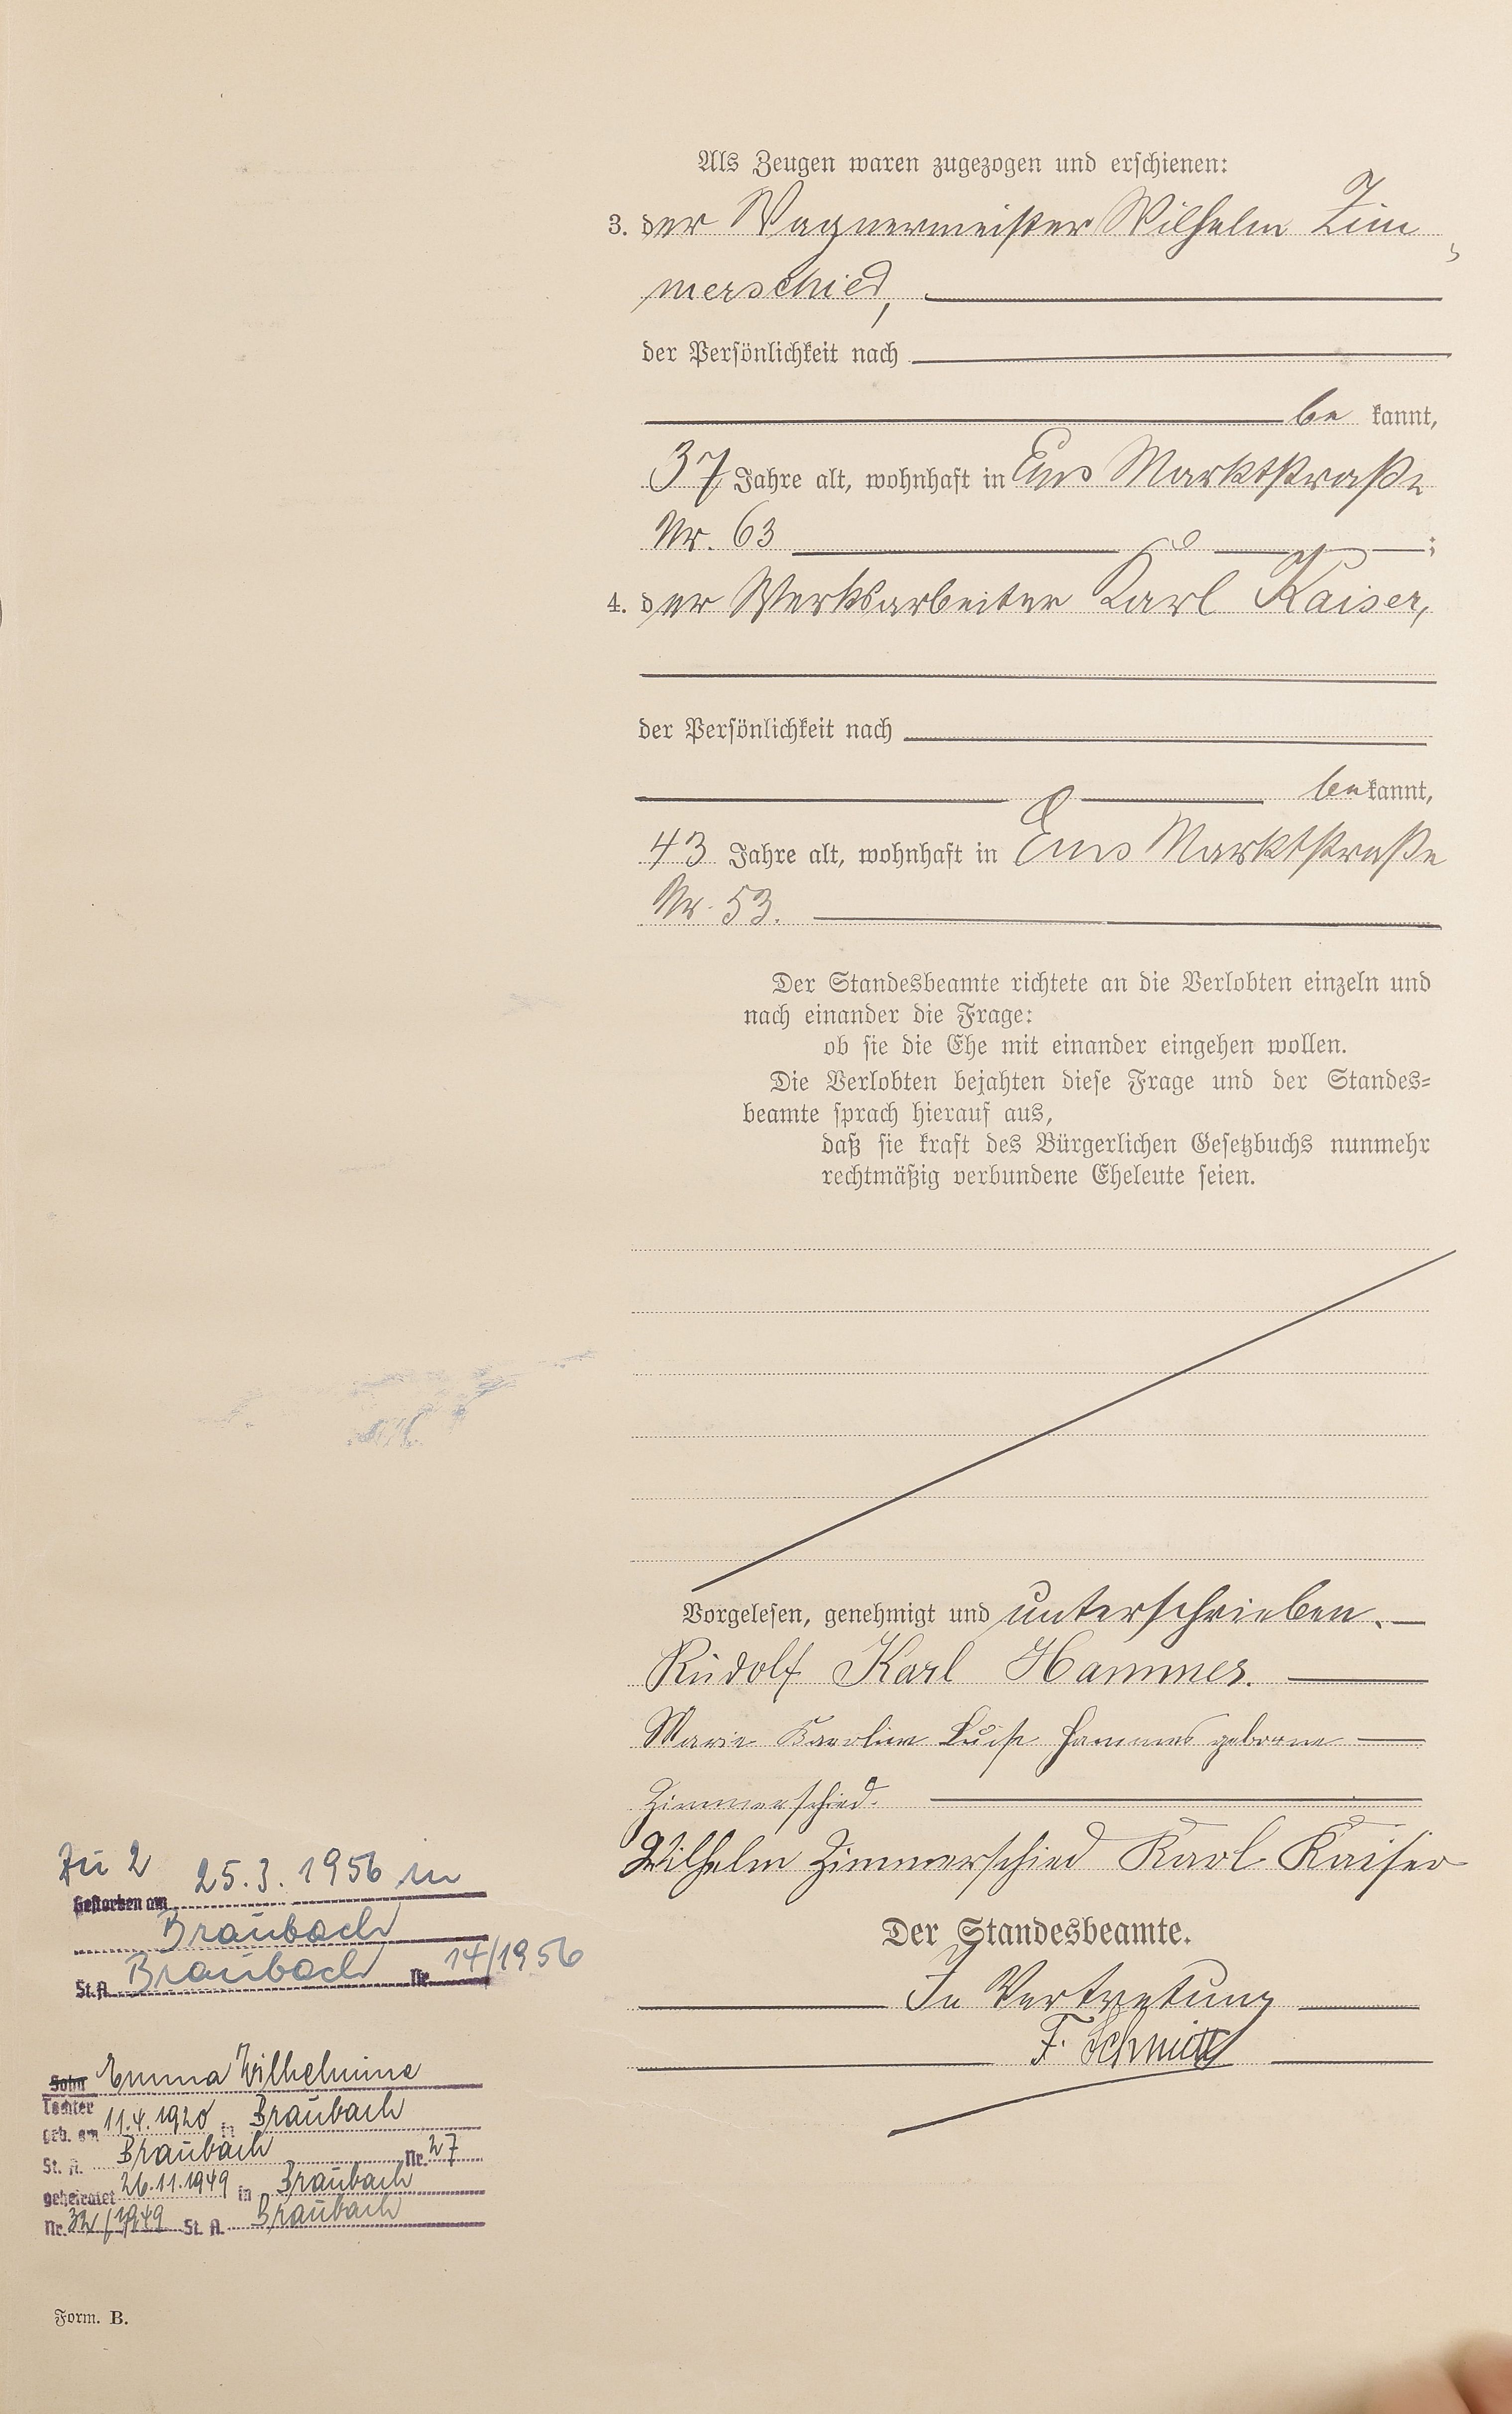 Als Zeugen waren zugezogen und erschienen:
3. der Wagnermeister Wilhelm Zim
merschied,
der Persönlichkeit nach
be kannt,
37 Jahre alt, wohnhaft in Ems Marktstraße
Nr. 63 ;
4. der Werksarbeiter Karl Kaiser,
der Persönlichkeit nach
be kannt,
43 Jahre alt, wohnhaft in Ems Marktstraße
Nr. 53.
Der Standesbeamte richtete an die Verlobten einzeln und
nach einander die Frage:
ob sie die Ehe mit einander eingehen wollen.
Die Verlobten bejahten diese Frage und der Standes=
beamte sprach hierauf aus,
daß sie kraft des Bürgerlichen Gesetzbuchs nunmehr
rechtmäßig verbundene Eheleute seien.
Vorgelesen, genehmigt und unterschrieben.
Rudolf Karl Hammes.
Marie Karoline Luise Hammes geborene
Zimmerschied.
Wilhelm Zimmerschied Karl Kaiser
Der Standesbeamte.
In Vertretung
F. Schmitt
Zu 2
Gestorben am 25.3.1956 in
Braubach
St.A. Braubach Nr. 14/1956
Sohn Emma Wilhelmine
Tochter
geb. am 11.4.1920 in Braubach
St. A. Braubach Nr. 27
geheiratet 26.11.1949 in Braubach
Nr. 32/1949 St. A. Braubach
Form. B.